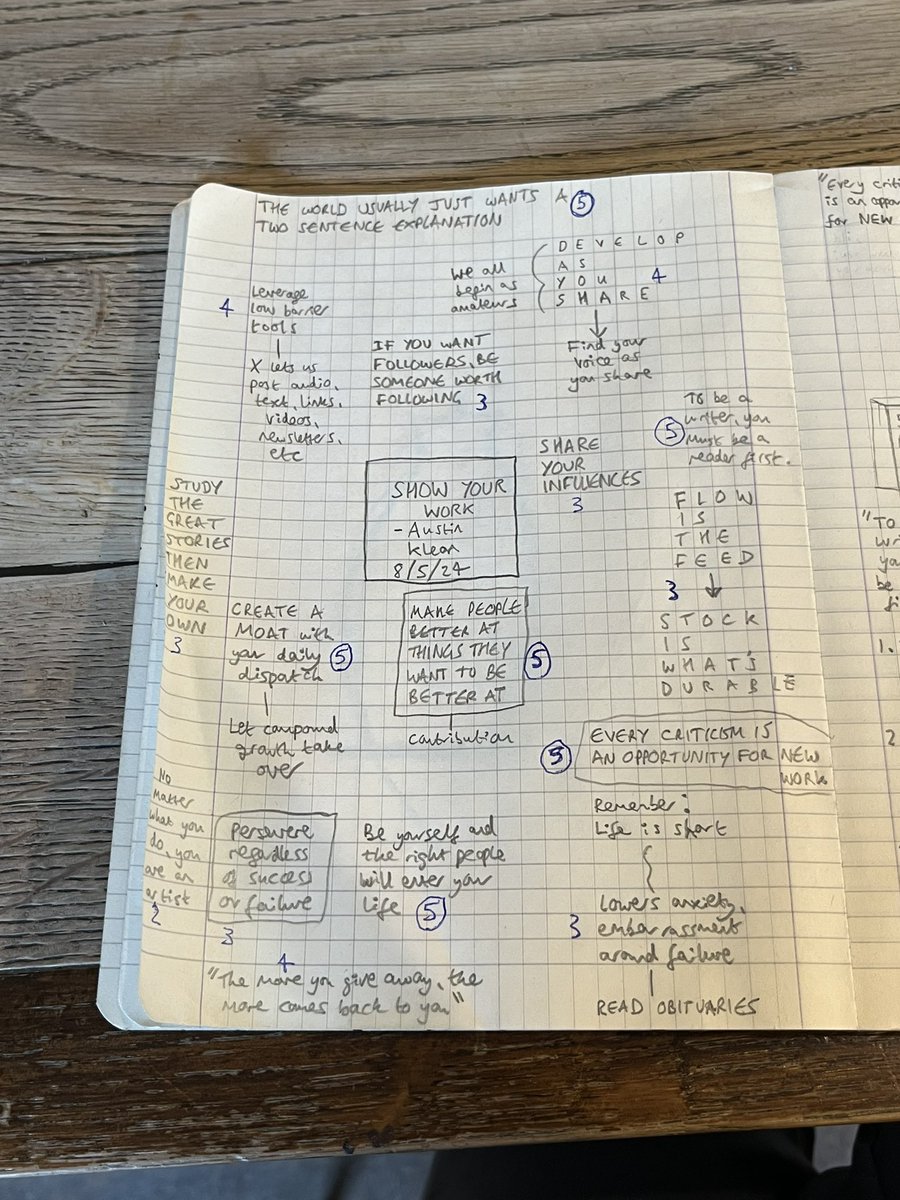 THE WORLD USUALLY JUST WANTS A 5
TWO SENTENCE EXPLANATION
We all
begin as
amateurs
DEVELOP
AS
YOU 4
SHARE
Find your
voice as
you share
4
Leverage
low barrier
tools
X lets us
post audio,
text, links,
videos,
newsletters,
etc
IF YOU WANT
FOLLOWERS, BE
SOMEONE WORTH
FOLLOWING 3
To be a
writer, you
5 must be a
reader first.
SHARE
YOUR
INFLUENCES
3
SHOW YOUR
WORK
- Austin
Kleon
8/5/24
FLOW
IS
THE
FEED
3
STOCK
IS
WHAT'S
DURABLE
STUDY
THE
GREAT
STORIES
THEN
MAKE
YOUR
OWN
3
CREATE A
MOAT with
your daily 5
dispatch
Let compound
growth take
over
MAKE PEOPLE
BETTER AT
THINGS THEY
WANT TO BE
BETTER AT
5
contribution
5
EVERY CRITICISM IS
AN OPPORTUNITY FOR NEW
WORK
No
matter
what you
do, you
are an
artist
2
Persevere
regardless
of success
or failure
3
Be yourself and
the right people
will enter your
life 5
Remember:
Life is short
Lowers anxiety,
3 embarrassment
around failure
READ OBITUARIES
4
"The more you give away, the
more comes back to you"
"Every
is an
for NEW
"To
be
1.
2